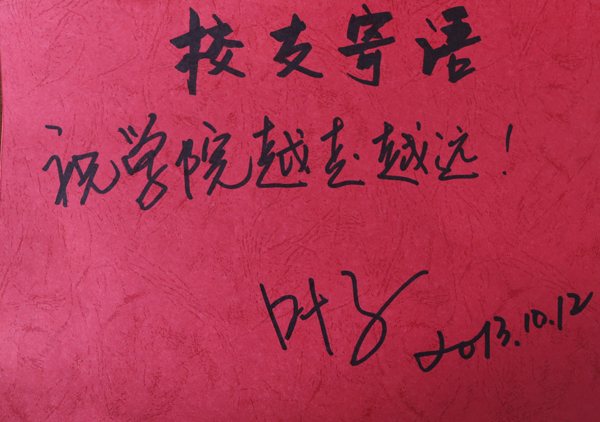 校友寄语
祝学院越走越远！
叶子 2013.10.12